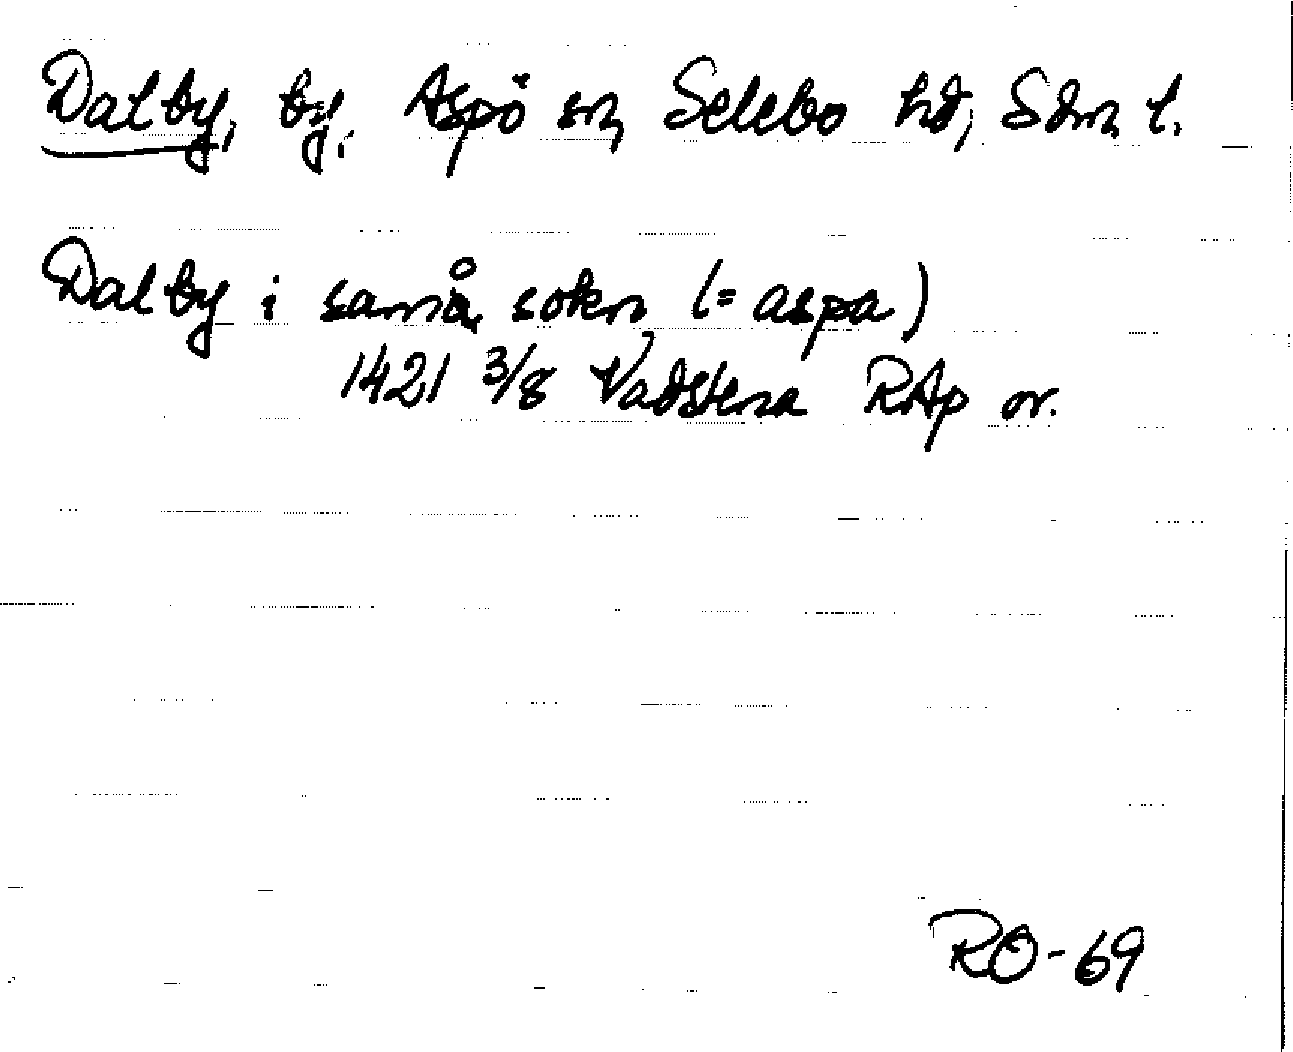 Dalby, by, Aspö sn, Selebo hd, Sdm. l.
Dalby i samå sokn (= aspa)
1421 3/8 Vadstena RAp or.
RO-69